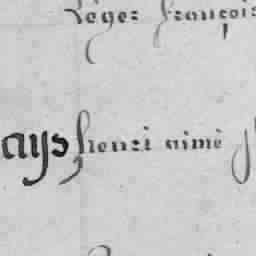 Léger françois
ays henri aimé